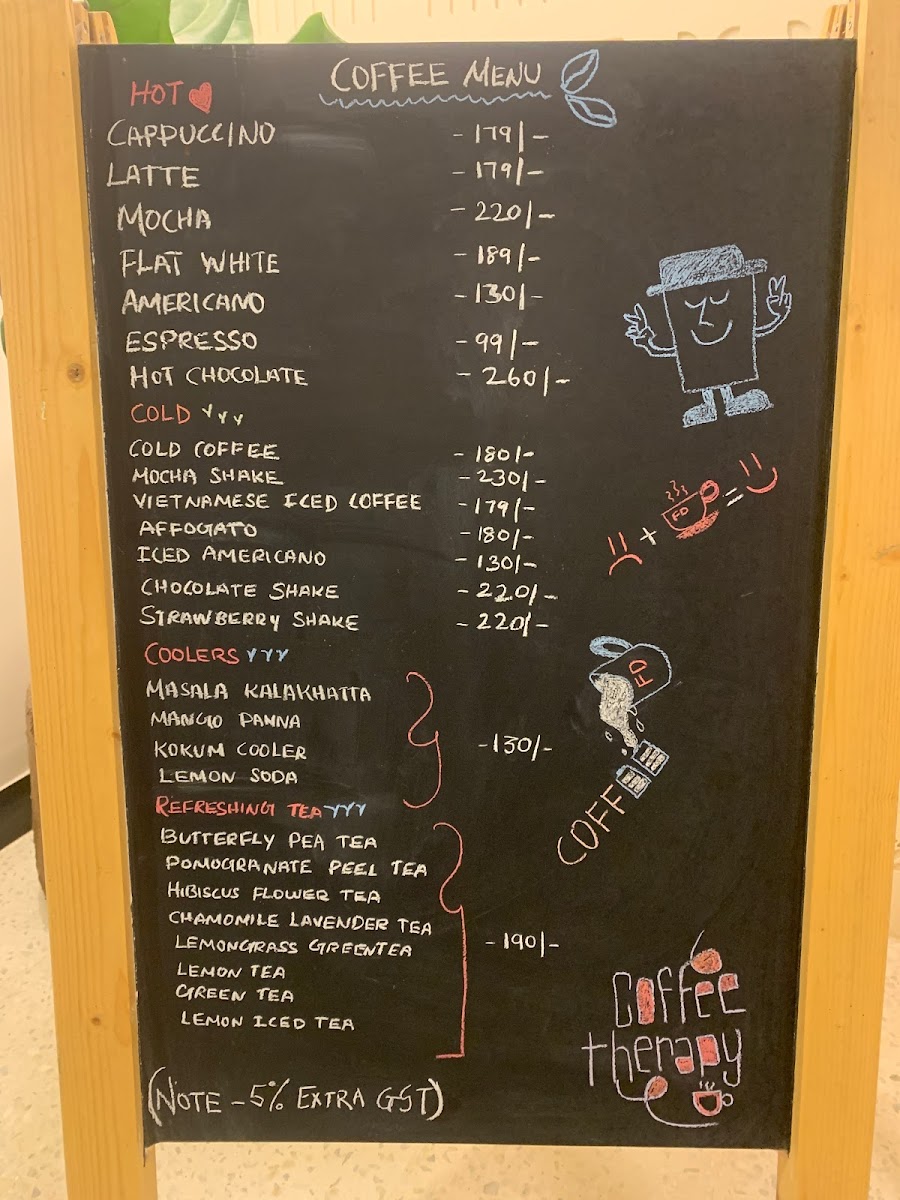 COFFEE MENU
HOT
CAPPUCCINO - 179/-
LATTE - 179/-
MOCHA - 220/-
FLAT WHITE - 189/-
AMERICANO - 130/-
ESPRESSO - 99/-
HOT CHOCOLATE - 260/-
COLD
COLD COFFEE - 180/-
MOCHA SHAKE - 230/-
VIETNAMESE ICED COFFEE - 179/-
AFFOGATO - 180/-
ICED AMERICANO - 130/-
CHOCOLATE SHAKE - 220/-
STRAWBERRY SHAKE - 220/-
COOLERS
MASALA KALAKHATTA
MANGO PANNA
KOKUM COOLER
LEMON SODA
- 130/-
REFRESHING TEA
BUTTERFLY PEA TEA
POMOGRANATE PEEL TEA
HIBISCUS FLOWER TEA
CHAMOMILE LAVENDER TEA
LEMONGRASS GREENTEA
LEMON TEA
GREEN TEA
LEMON ICED TEA
- 190/-
(NOTE - 5% EXTRA GST)
+ FD =
FD
COFFEE
Coffee
therapy